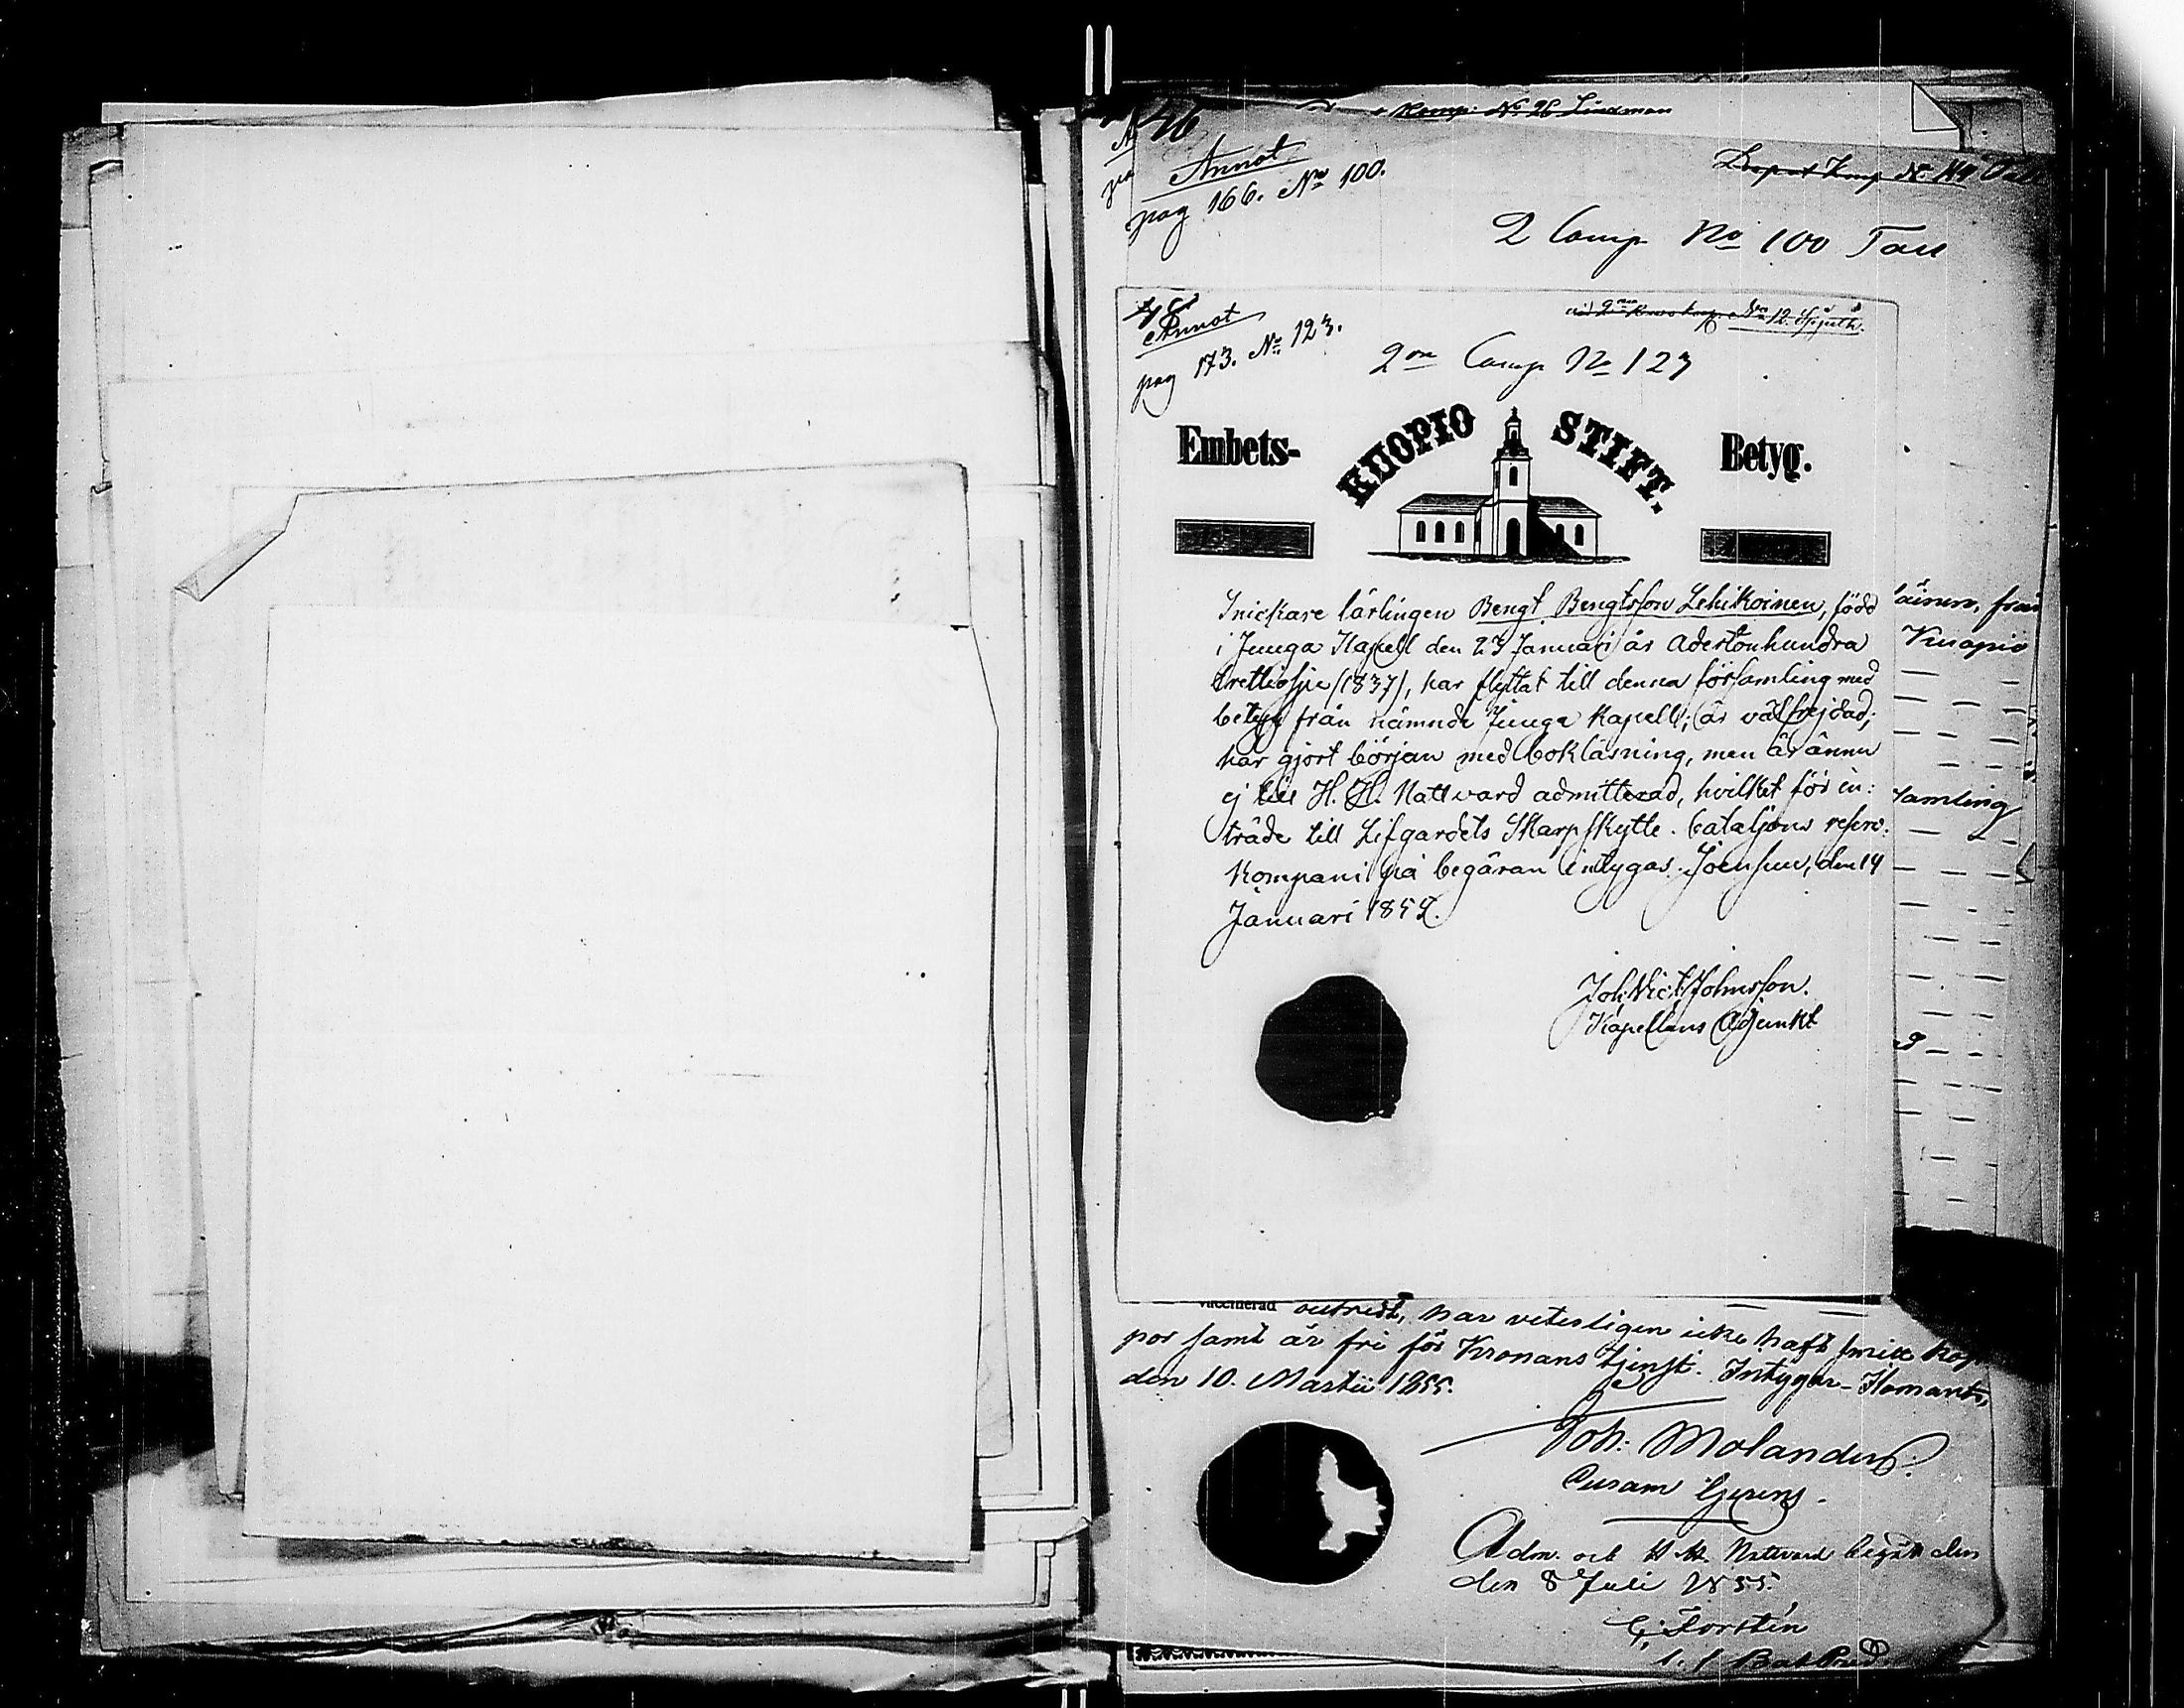 46
Komp: No 26 Lindman
Annot
pag 166. No 100.
Depot Komp No
2 Comp No 100 Tall
48
Annot
pag 173. No 123.
No 12. Spjuth.
2on Comp No 123
Embets- KUOPIO STIFT. Betyg.
Snickare lärlingen Bengt Bengtsson Lehikoinen, född
i Juuga Kapell den 23 Januari år Adertonhundra
trettiosju (1837), har flyttat till denna församling med
betyg från nämnde Juuga Kapell; är välfrejdad;
har gjort början med bokläsning, men är ännu
ej till H. H. Nattvard admitterad, hvilket för in:
träde till Lifgardets Skarpskytte. bataljons reserv.
Kompani på begäran intygas. Joensuu, den 14
Januari 1852.
Joh. Vict. Johnsson.
Kapellans Adjunkt
äinen, från
Kuopio
samling
vaccinerad har veterligen icke haft
por samt är fri för Kronans tjenst. Intygar-Ilomants,
den 10. Martii 1855.
Joh: Molander.
Curam Gerens.
Adm. och H. H. Nattvard begått
den 8 Juli 1855.
G. Forstén